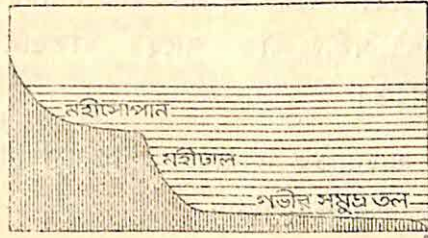 মহীসোপান
মহীঢাল
গভীর সমুদ্র তল